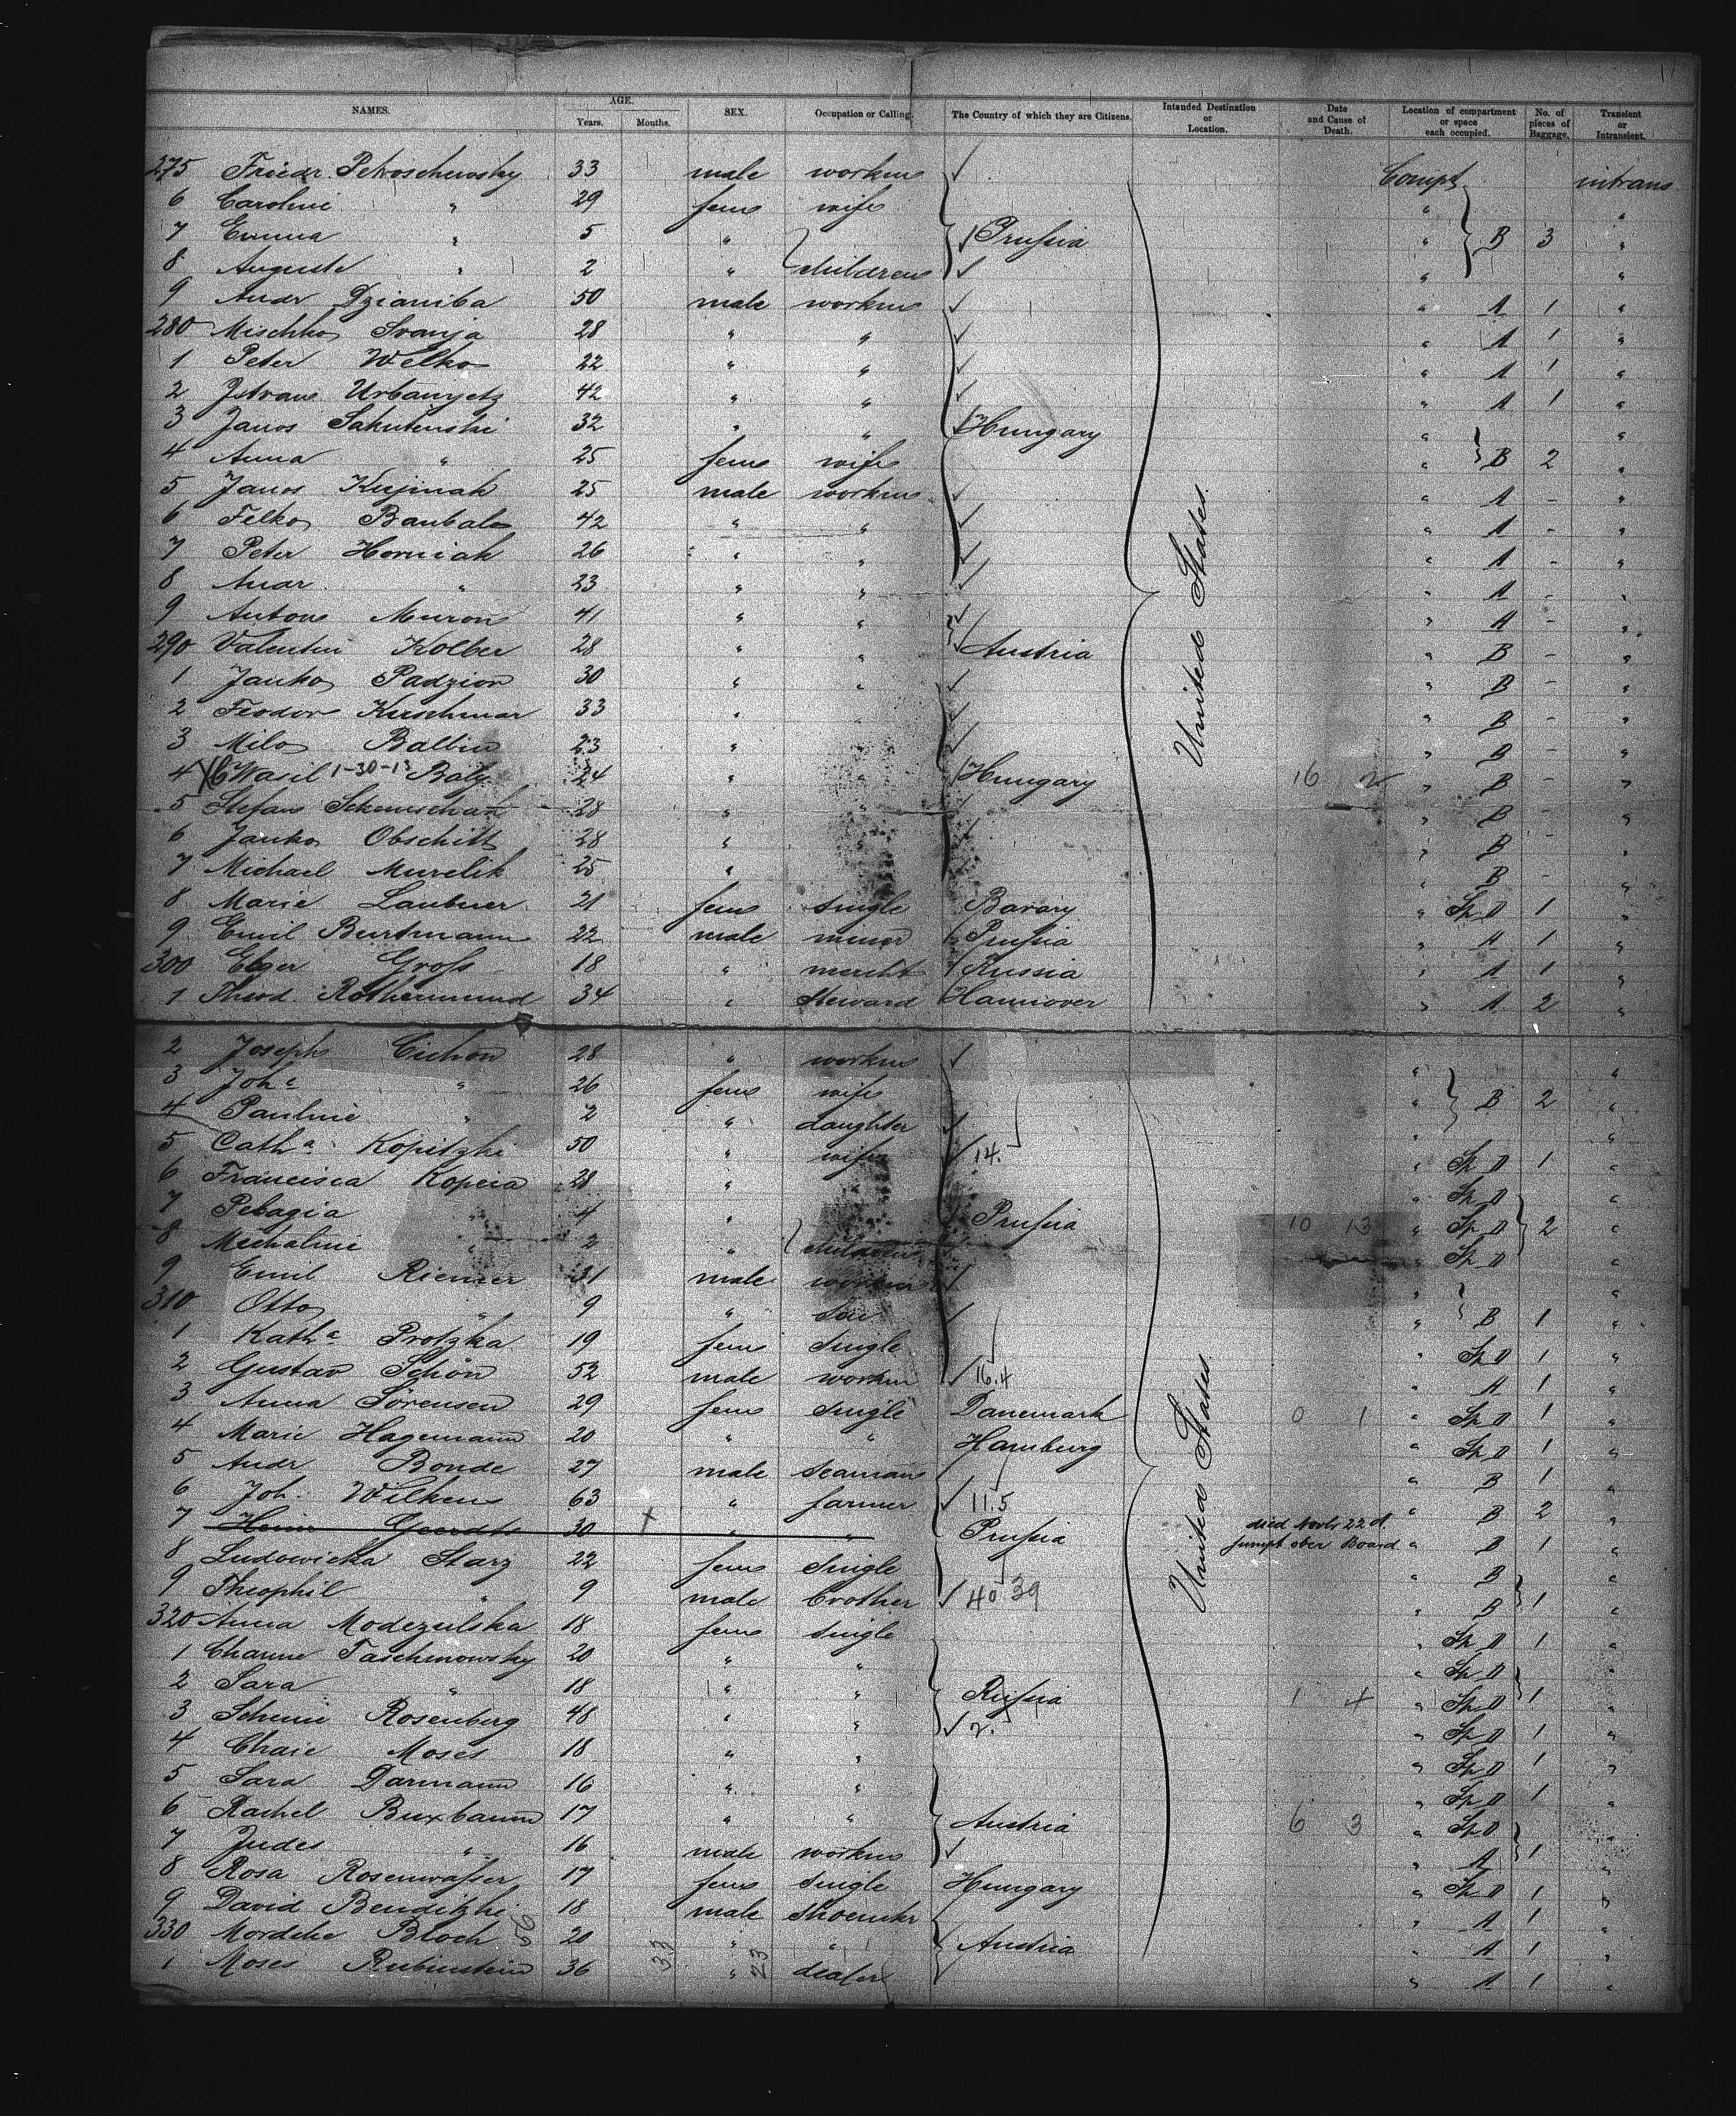 NAMES. AGE. Years. Months. SEX. Occupation or Calling. The Country of which they are Citizens. Intended Destination or Location. Date and Cause of Death. Location of compartment or space each occupied. No. of pieces of Baggage. Transient or Intransient.
275 Friedr. Petroschewsky 33 male workm Compt intrans
6 Caroline " 29 fem wife " "
7 Emma " 5 " Prussia " B 3 "
8 Auguste " 2 " children " "
9 Andr Dzianiba 50 male workm " A 1 "
280 Mischko Svanja 28 " " " A 1 "
1 Peter Welko 22 " " " A 1 "
2 Istvan Urbanyetz 42 " " " A 1 "
3 Janos Sakutenski 32 " " Hungary " "
4 Anna " 25 fem wife " B 2 "
5 Janos Kujinak 25 male workm " A - "
6 Felko Banbala 42 " " " A - "
7 Peter Horniak 26 " " " A - "
8 Andr. " 23 " " " A - "
9 Anton Muron 41 " " " A - "
290 Valentin Kolber 28 " " Austria " B - "
1 Janko Padzion 30 " " " B - "
2 Feodor Kuschmar 33 " " " B - "
3 Milo Ballin 23 " " " B - "
4 Wasil 1-30-13 Baly 24 " " Hungary 16 2 " B - "
5 Stefan 28 " " " B - "
6 Janko Obschitt 28 " " B - "
7 Michael Murelik 25 " " B - "
8 Marie Laubner 21 fem single Bavary " Sp D 1 "
9 Emil Burtmann 22 male miner Prussia " A 1 "
300 Elger Gross 18 " mercht Russia " A 1 "
1 Theod. Rothermund 34 " Steward Hannover " A 2 "
United States.
2 Joseph Cichon 28 " workm " "
3 Joh^a " 26 fem wife " B 2 "
4 Pauline " 2 " daughter " "
5 Cath^a Kopitzki 50 " wife 14. " Sp D 1 "
6 Francisca Kopeia 28 " " " Sp D "
7 Pelagia " 4 " Prussia 10 13 " Sp D 2 "
8 Michaline " 2 " children Sp D "
9 Emil Riemer 31 male workm " "
310 Otto " 9 " Son " B 1 "
1 Kath^a Protzka 19 fem single " Sp D 1 "
2 Gustav Schön 52 male workm 16.4 " A 1 "
3 Anna Sörensen 29 fem single Danemark 0 1 " Sp D 1 "
4 Marie Hagemann 20 " " Hamburg " Sp D 1 "
5 Andr Bonde 27 male seaman " B 1 "
6 Joh. Wilkens 63 " farmer 11.5 " B 2 "
7 Heinr Geerdts 30 + " " Prussia died Novbr 22d. jumpt ober Board " B 1 "
8 Ludowicka Starz 22 fem single " B "
9 Theophil " 9 male brother 40 39 " B 1 "
320 Anna Modezulska 18 fem single " Sp D 1 "
1 Channe Taschmowsky 20 " " " Sp D "
2 Sara " 18 " " Russia 1 4 " Sp D 1 "
3 Scheine Rosenberg 48 " " 2. " Sp D 1 "
4 Chaie Moses 18 " " " Sp D 1 "
5 Sara Darmann 16 " " " Sp D 1 "
6 Rachel Buxbaum 17 " " Austria 6 3 " Sp D "
7 Judes " 16 male workm " A 1 "
8 Rosa Rosenwasser 17 fem single Hungary " Sp D 1 "
9 David Benditzki 18 male shoemkr " A 1 "
330 Mordche Bloch 56 20 " " Austria " A 1 "
1 Moses Rubinstein 36 33 " 23 dealer " A 1 "
United States.